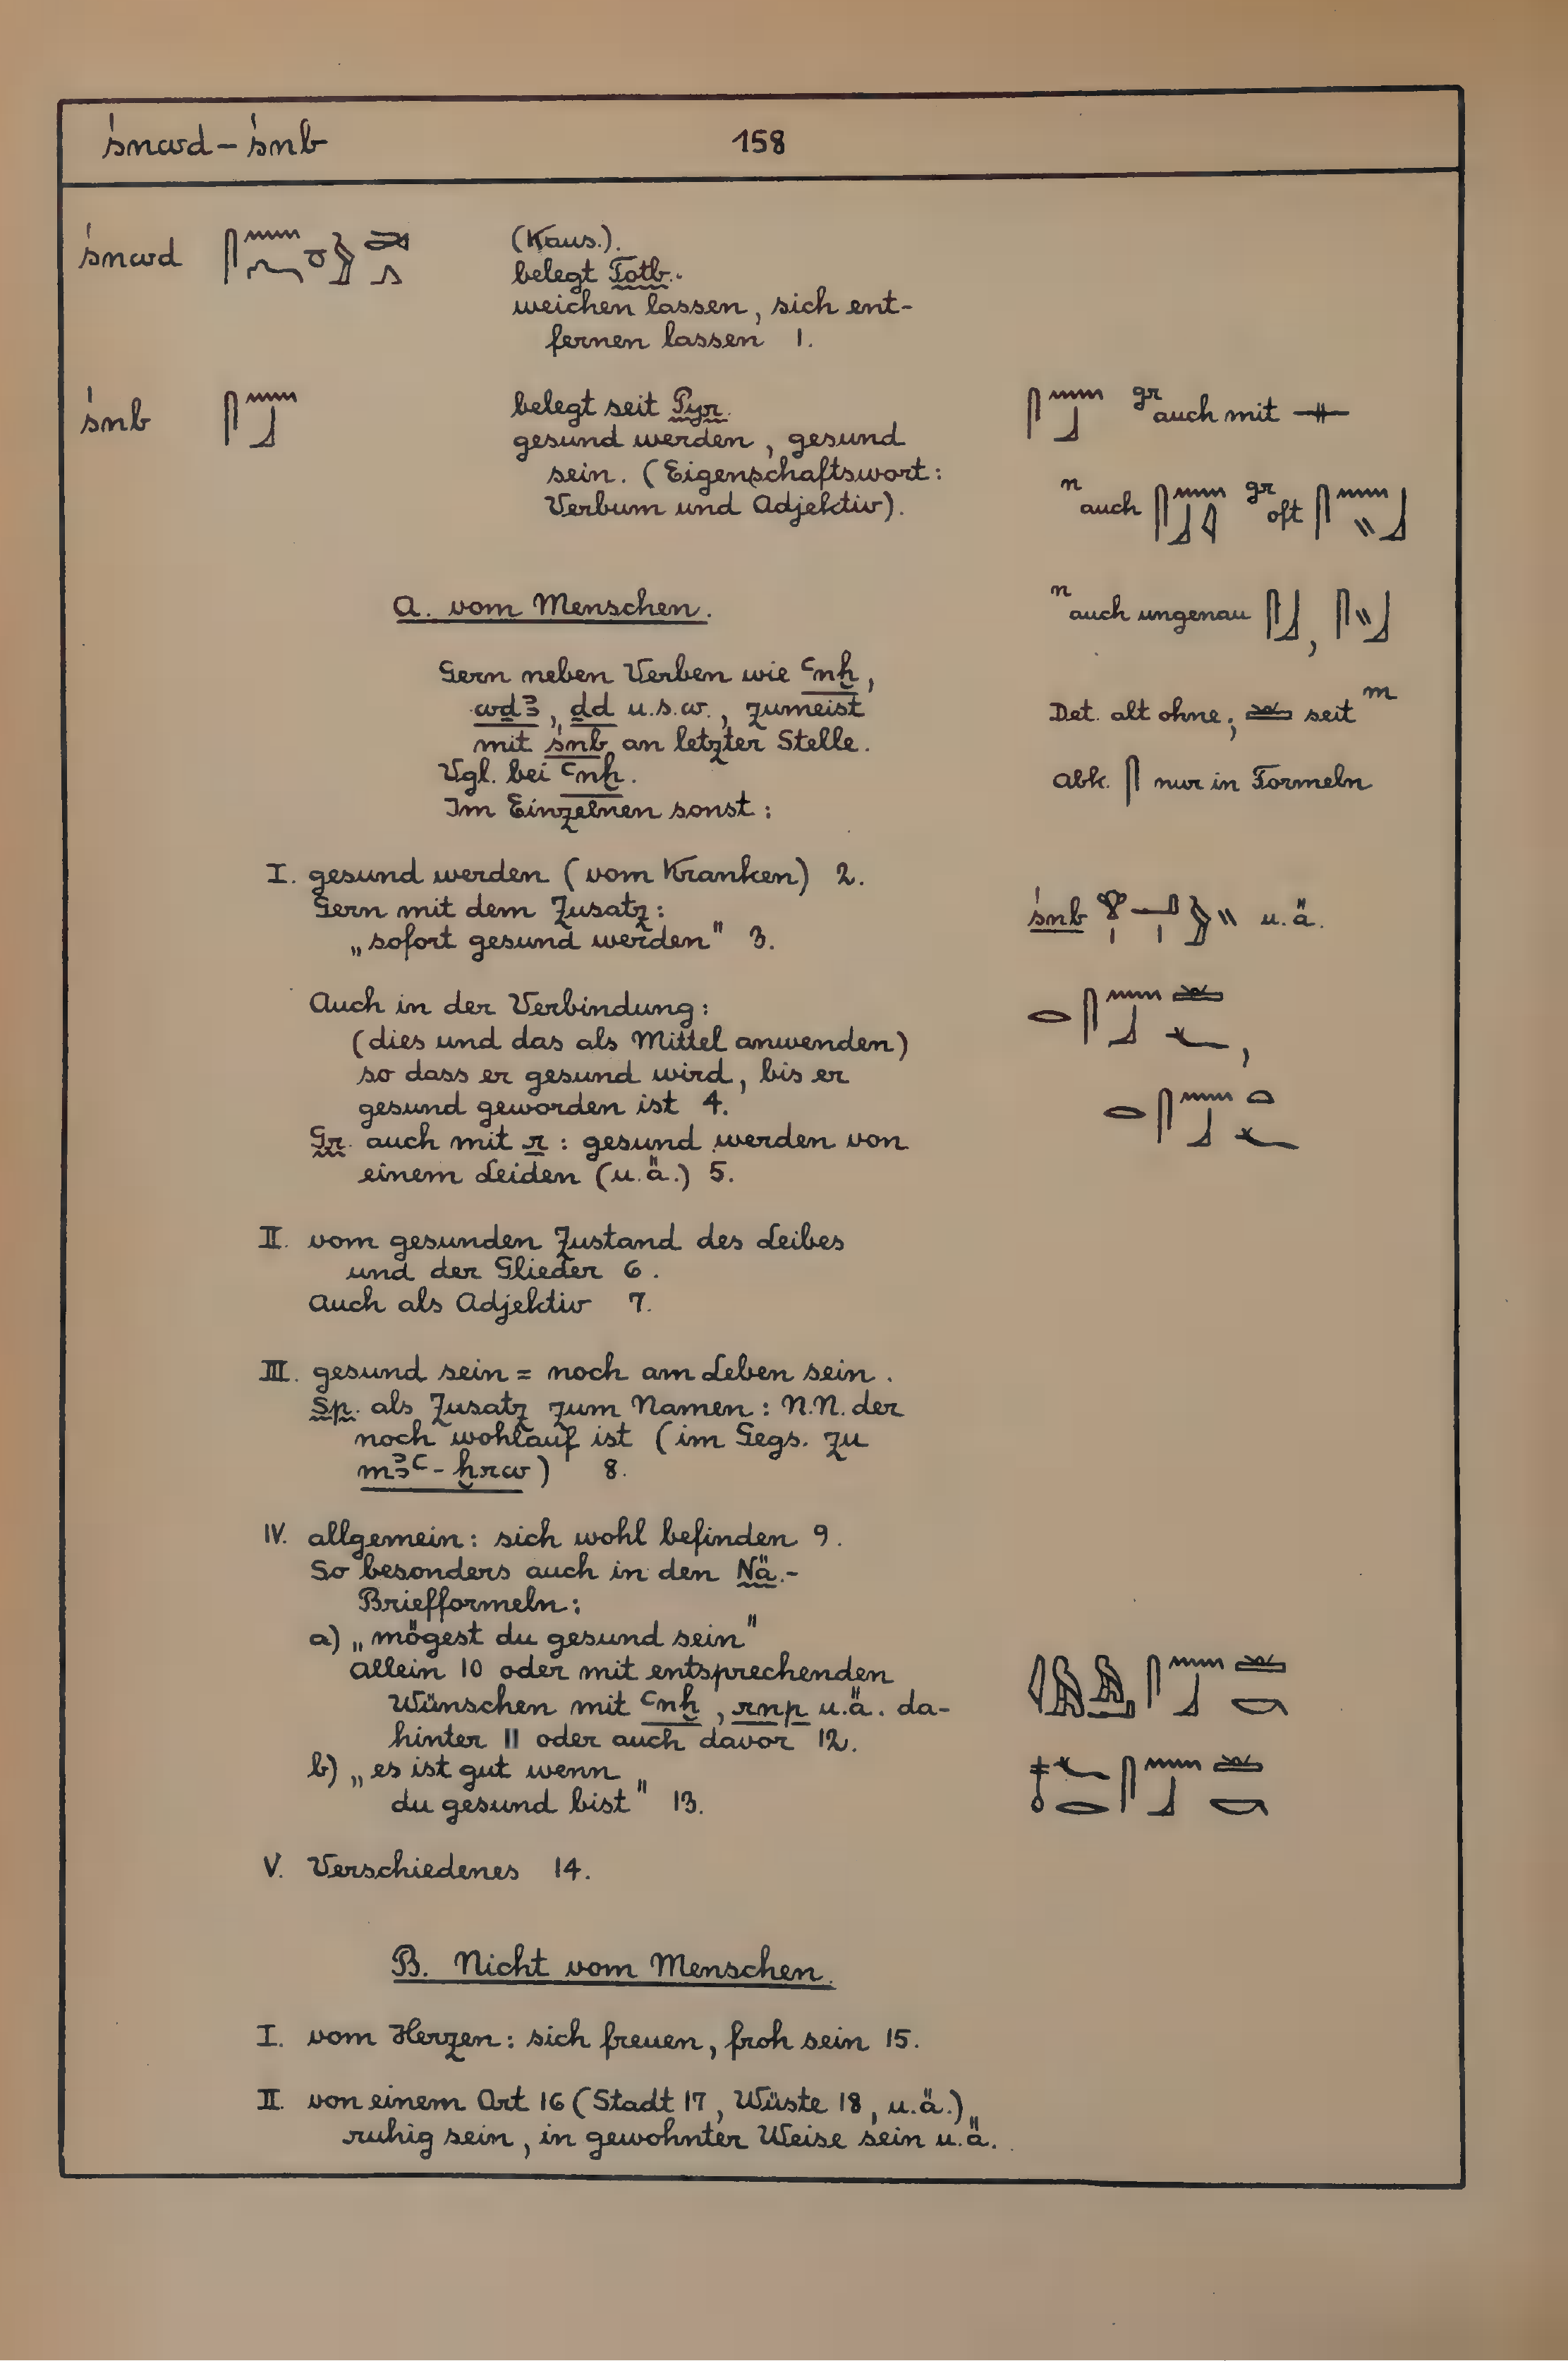 śnwd – śnb 158
śnwd (Kaus.).
belegt Totb.
weichen lassen, sich ent-
fernen lassen 1.
śnb belegt seit Pyr.
gesund werden, gesund
sein. (Eigenschaftswort:
Verbum und Adjektiv).
gr auch mit
n auch gr oft
n auch ungenau ,
Det. alt ohne; seit m
Abk. nur in Formeln
A. vom Menschen.
Gern neben Verben wie ꜥnḫ,
wḏꜣ, ḏd u.s.w., zumeist
mit śnb an letzter Stelle.
Vgl. bei ꜥnḫ.
Im Einzelnen sonst:
I. gesund werden (vom Kranken) 2.
Gern mit dem Zusatz:
„sofort gesund werden" 3.
śnb u.ä.
Auch in der Verbindung:
(dies und das als Mittel anwenden)
so dass er gesund wird, bis er
gesund geworden ist 4.
Gr. auch mit r : gesund werden von
einem Leiden (u.ä.) 5.
II. vom gesunden Zustand des Leibes
und der Glieder 6.
Auch als Adjektiv 7.
III. gesund sein = noch am Leben sein.
Sp. als Zusatz zum Namen: N.N. der
noch wohlauf ist (im Gegs. zu
mꜣꜥ-ḫrw) 8.
IV. allgemein: sich wohl befinden 9.
So besonders auch in den Nä.-
Briefformeln:
a) „mögest du gesund sein"
allein 10 oder mit entsprechenden
Wünschen mit ꜥnḫ, rnp u.ä. da-
hinter 11 oder auch davor 12.
b) „es ist gut wenn
du gesund bist" 13.
V. Verschiedenes 14.
B. Nicht vom Menschen.
I. vom Herzen: sich freuen, froh sein 15.
II. von einem Ort 16 (Stadt 17, Wüste 18, u.ä.)
ruhig sein, in gewohnter Weise sein u.ä.